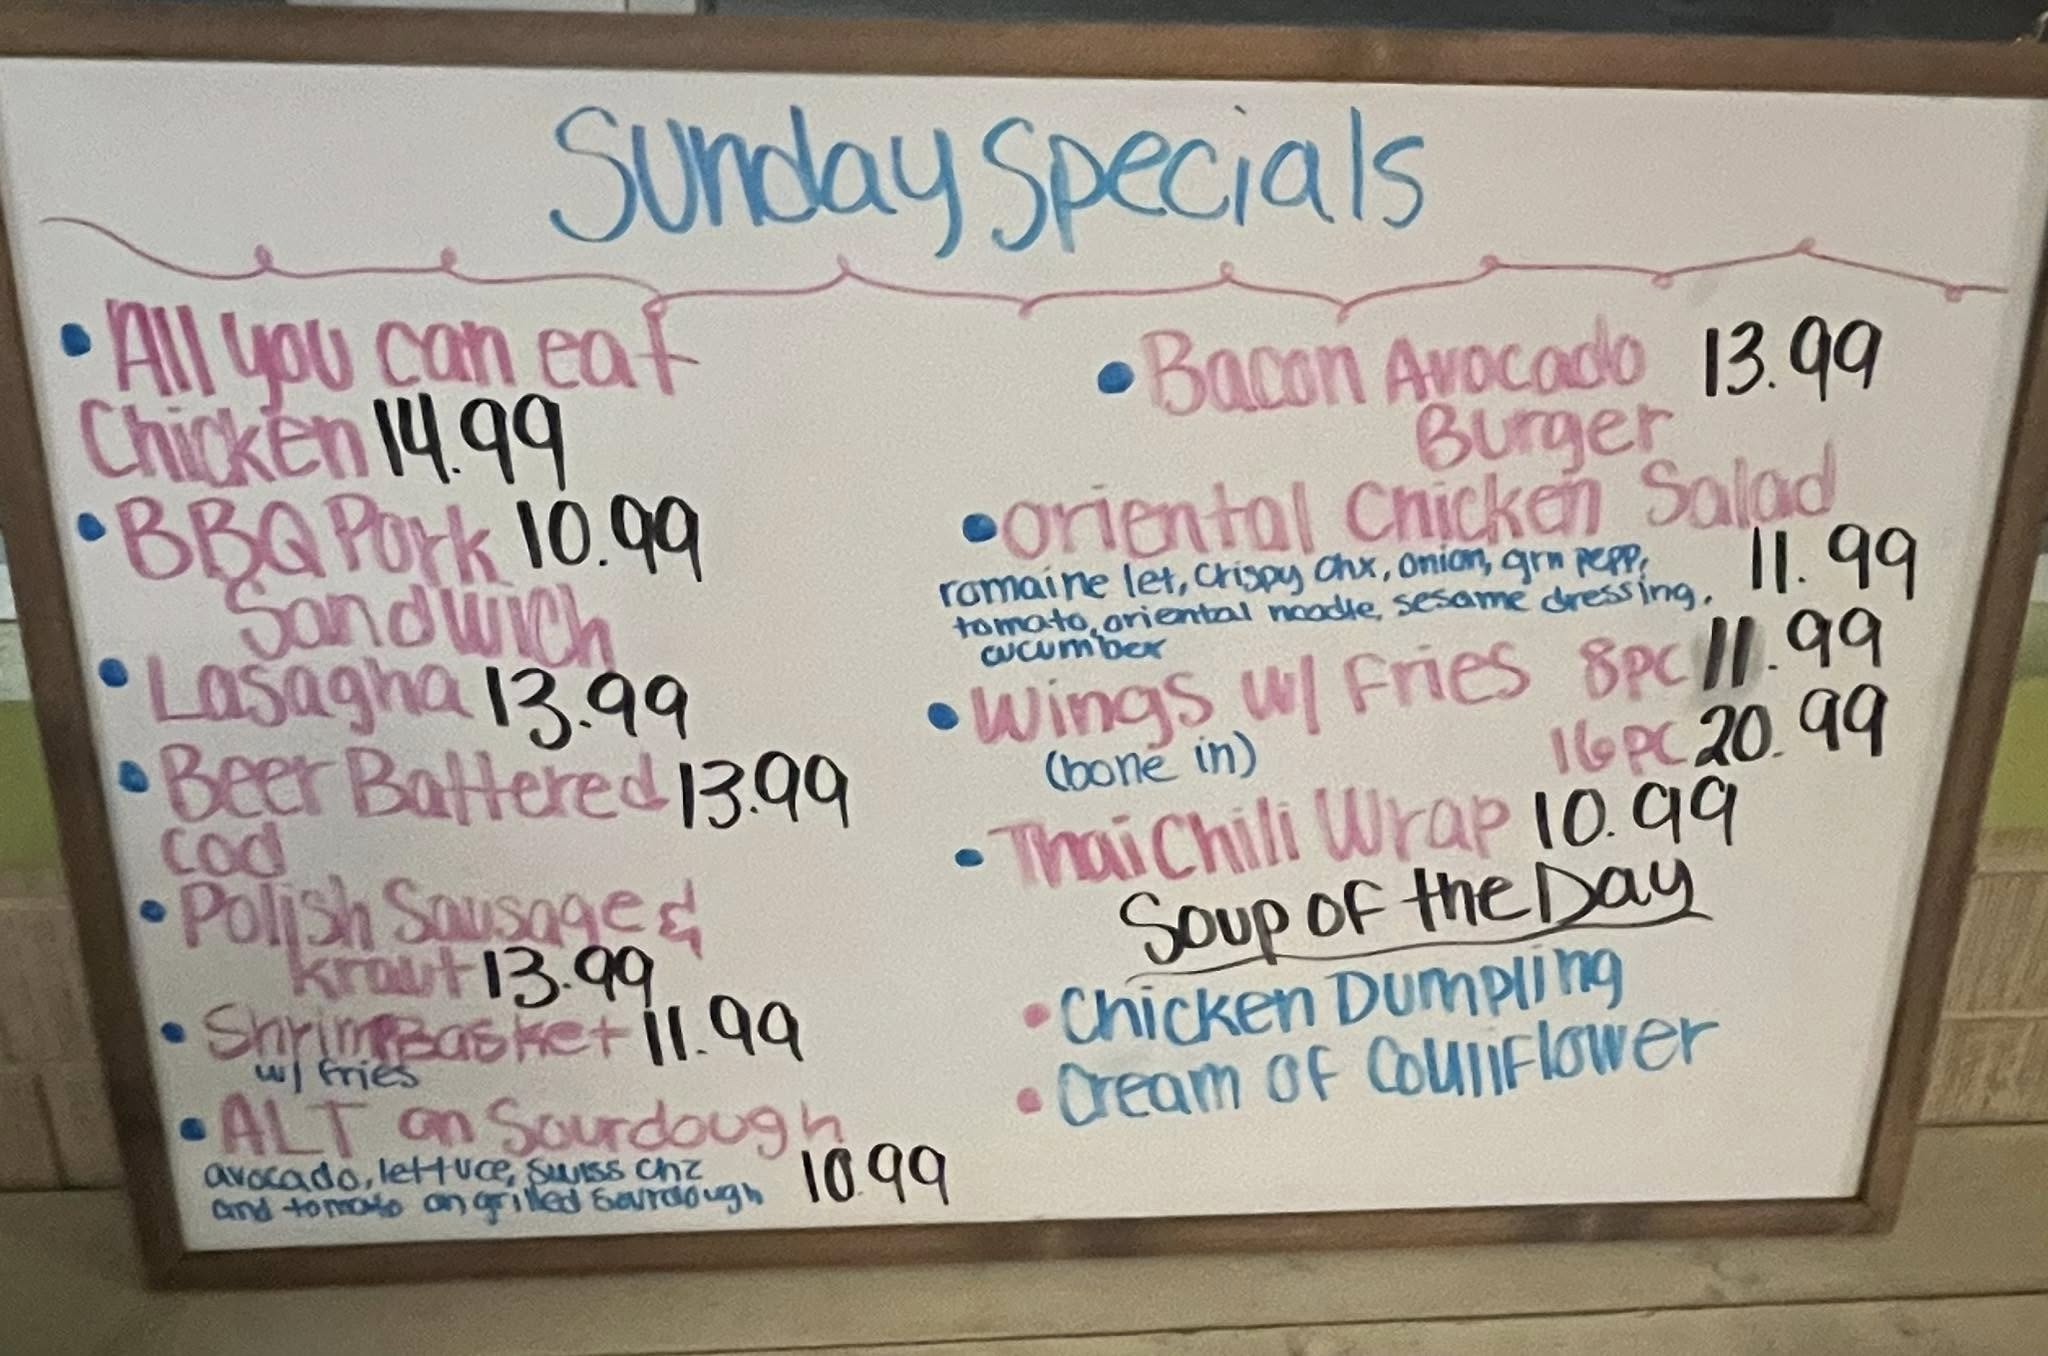 Sunday Specials
• All you can eat
Chicken 14.99
• BBQ Pork 10.99
Sandwich
• Lasagna 13.99
• Beer Battered 13.99
cod
• Polish Sausage &
kraut 13.99
• Shrimp Basket 11.99
w/ fries
• ALT on Sourdough
avocado, lettuce, swiss chz
and tomato on grilled sourdough 10.99
• Bacon Avocado 13.99
Burger
• Oriental Chicken Salad
romaine let, crispy chx, onion, grn pepp, 11.99
tomato, oriental noodle, sesame dressing,
cucumber
• Wings w/ Fries 8pc 11.99
(bone in) 16pc 20.99
• Thai Chili Wrap 10.99
Soup of the Day
• Chicken Dumpling
• Cream of Couliflower